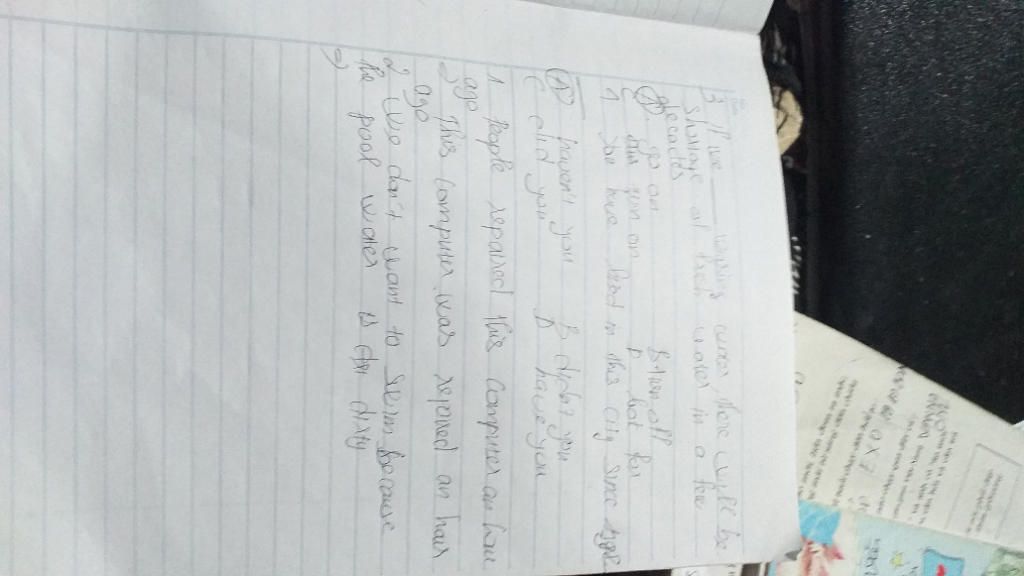 3 If we ___ wasting water there will be
shortage of fresh water in a few
decades
(A) go on B turn off
C turn on D look for
1 We have lived in this city since 1992
(A) haven't you B didn't you
C did you D have you
1 People repaired this computer an hour
ago
→ This computer was repaired an hour
ago
2 We don't want to swim because
the pool water is dirty
→)